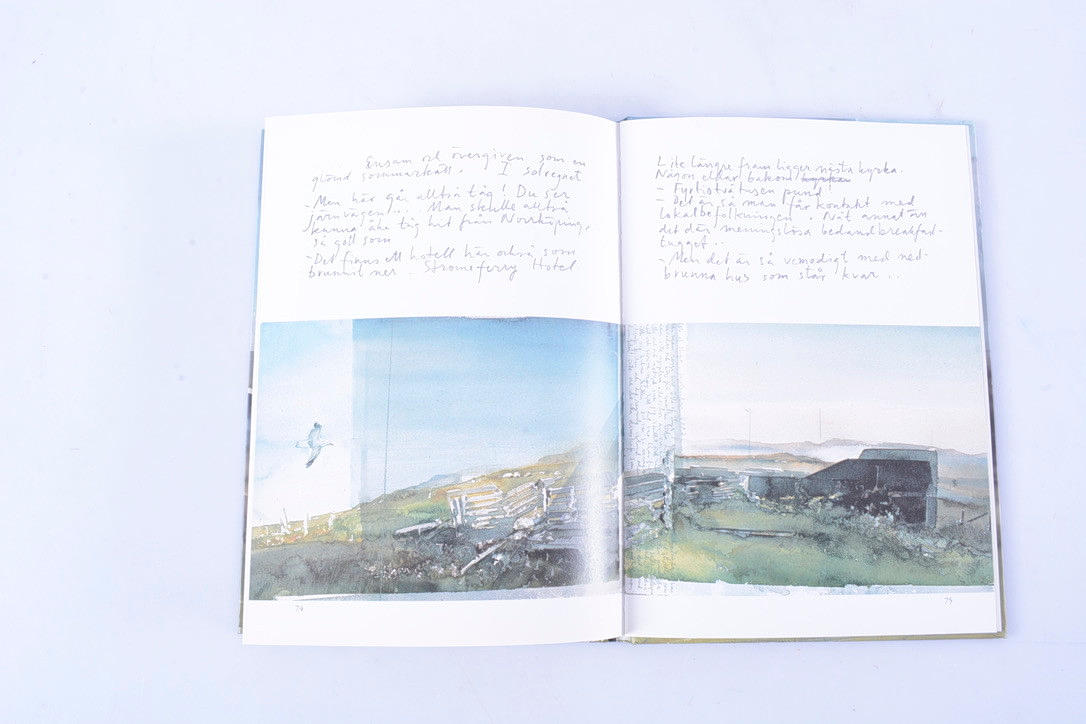 Ensam och övergiven som en
glömd sommarkatt. I solregnet
- Men här går alltså tåg! Du ser
järnvägen... Man skulle alltså
kunna åka tåg hit från Norrköping,
så gott som
- Det finns ett hotell här också som
brunnit ner. Stromeferry Hotel
74
Lite längre fram ligger nästa kyrka.
Någon eldar bakom kyrkan
- Fyrtiotvåtusen pund!
- Det är så man får kontakt med
lokalbefolkningen. Nåt annat än
det där meningslösa bedandbreakfast-
tugget...
- Men det är så vemodigt med ned-
brunna hus som står kvar...
75